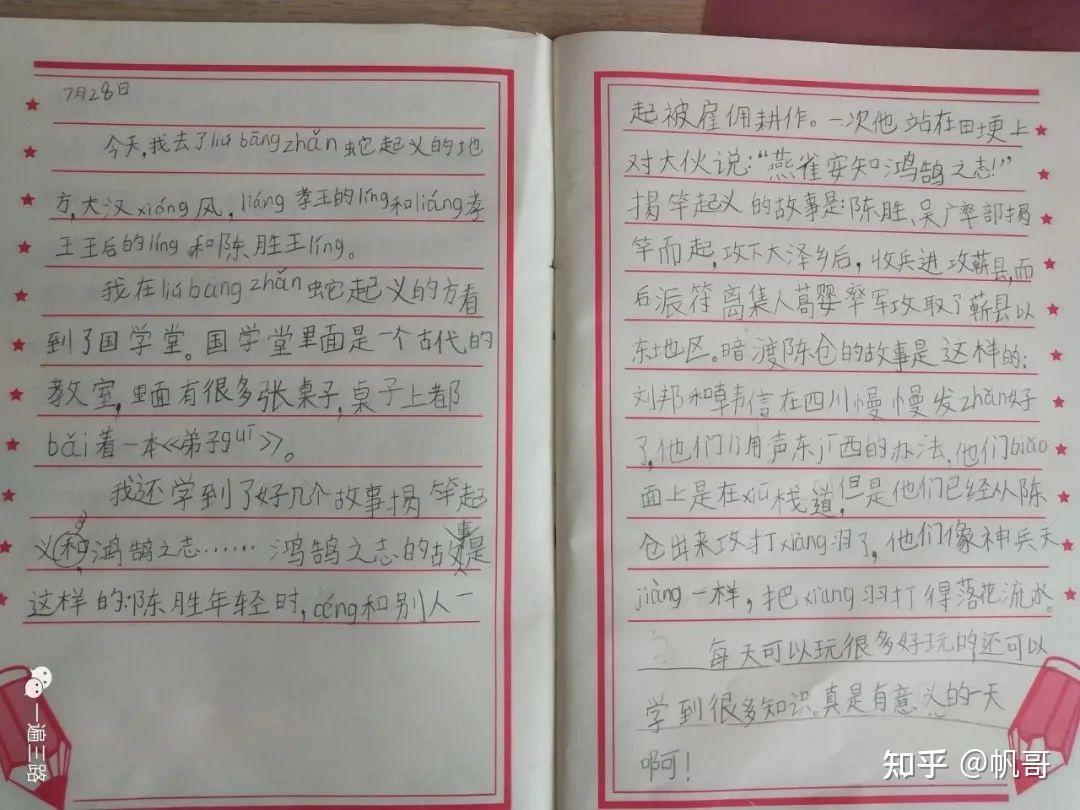 7月28日
今天,我去了liú bāng zhǎn 蛇起义的地
方,大汉xióng风,liáng孝王的líng和liáng孝
王王后的líng和陈胜王líng。
我在liú bāng zhǎn蛇起义的方看
到了国学堂。国学堂里面是一个古代的
教室,里面有很多张桌子,桌子上都
bǎi着一本《弟子guī》。
我还学到了好几个故事揭竿起
义和鸿鹄之志……鸿鹄之志的故事是
这样的:陈胜年轻时,céng和别人一
起被雇佣耕作。一次他站在田埂上
对大伙说:“燕雀安知鸿鹄之志!”
揭竿起义的故事是:陈胜、吴广率部揭
竿而起,攻下大泽乡后,收兵进攻蕲县,而
后派符离集人葛婴率军攻取了蕲县以
东地区。暗渡陈仓的故事是这样的:
刘邦和韩信在四川慢慢发zhǎn好
了,他们用声东jī西的办法,他们biǎo
面上是在xiū栈道,但是他们已经从陈
仓出来攻打xiàng羽了,他们像神兵天
jiàng一样,把xiàng羽打得落花流水。
每天可以玩很多好玩的,还可以
学到很多知识。真是有意义的一天
啊!
一遍三路
知乎 @帆哥